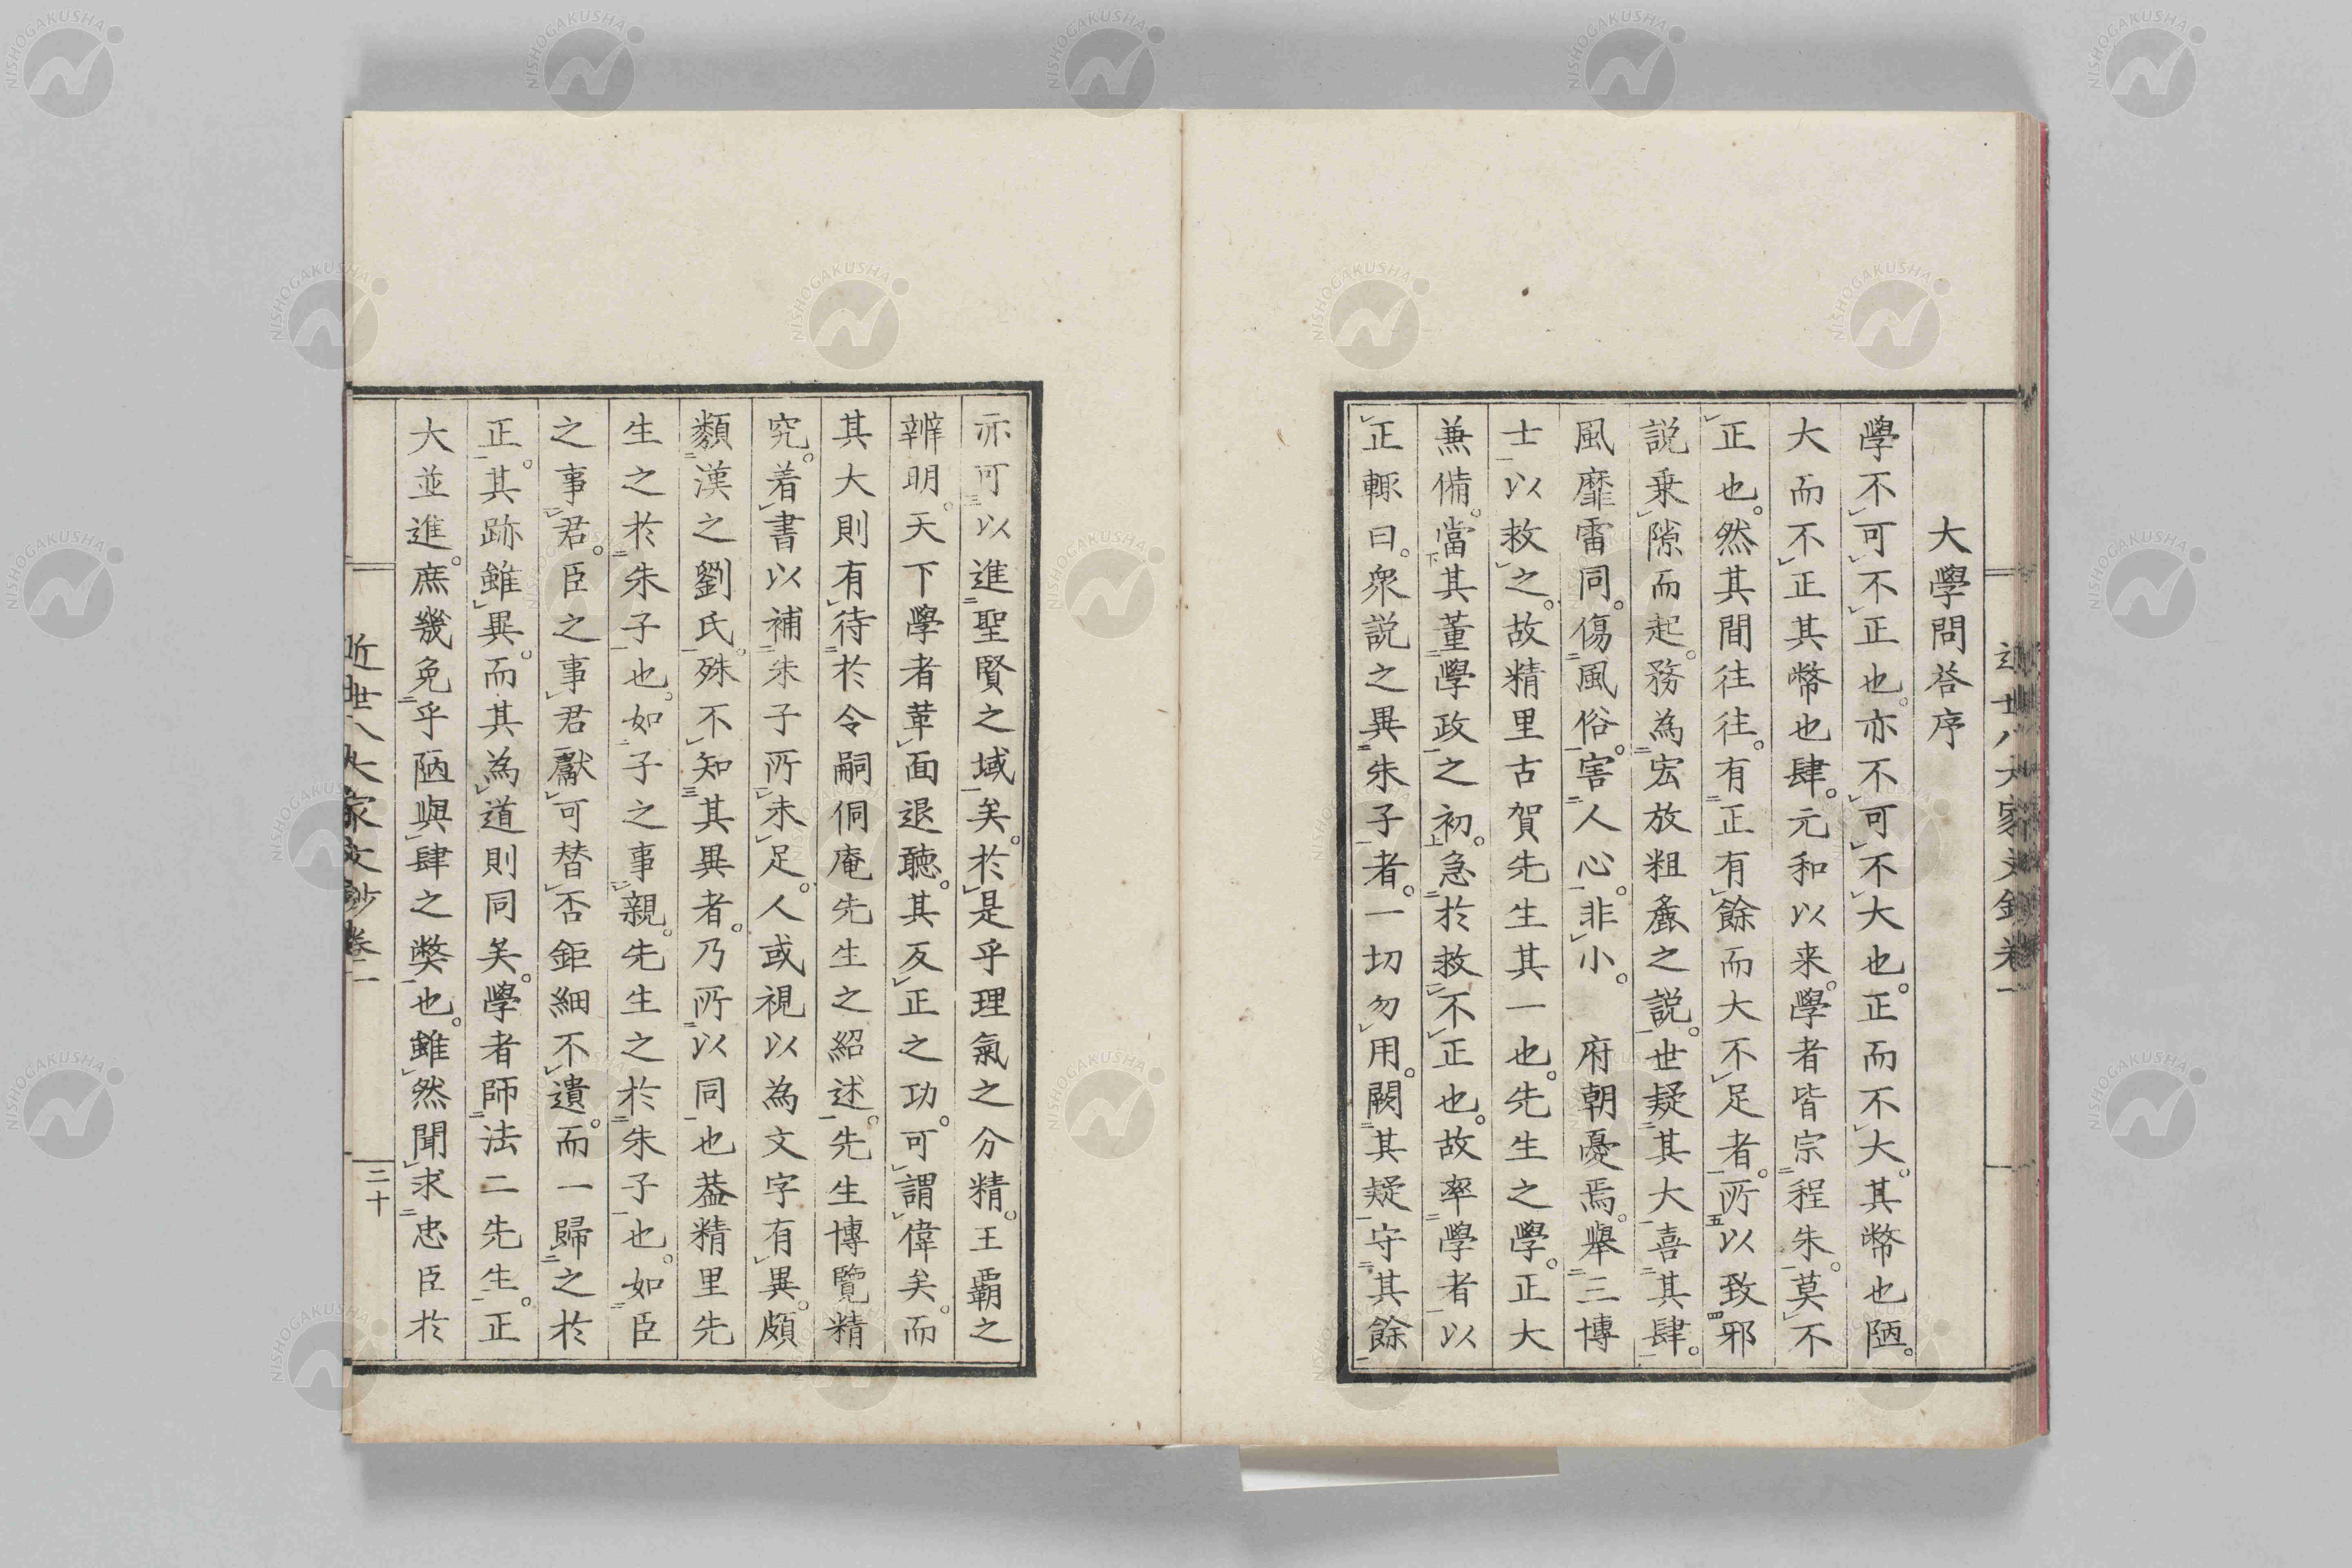 大學問荅序
學不可不正也。亦不可不大也。正而不大。其幣也陋。
大而不正其幣也肆。元和以来。學者皆宗程朱。莫不
正也。然其間往往。有正有餘而大不足者。所以致邪
説乗隙而起。務為宏放粗麁之説。世疑其大喜其肆。
風靡雷同。傷風俗。害人心。非小。　府朝憂焉。擧三博
士以救之。故精里古賀先生其一也。先生之學。正大
兼備。當其董學政之初。急於救不正也。故率學者以
正輙曰。衆説之異朱子者。一切勿用。闕其疑守其餘
亦可以進聖賢之域矣。於是乎理氣之分精。王覇之
辨明。天下學者革面退聽。其反正之功。可謂偉矣。而
其大則有待於令嗣侗庵先生之紹述。先生博覽精
究。着書以補朱子所未足。人或視以為文字有異。頗
類漢之劉氏。殊不知其異者。乃所以同也葢精里先
生之於朱子也。如子之事親。先生之於朱子也。如臣
之事君。臣之事君獻可替否鉅細不遺。而一歸之於
正。其跡雖異。而其為道則同矣。學者師法二先生。正
大並進。庶幾免乎陋與肆之弊也。雖然聞求忠臣於
近世八大家文鈔卷二
二十
NISHOGAKUSHA